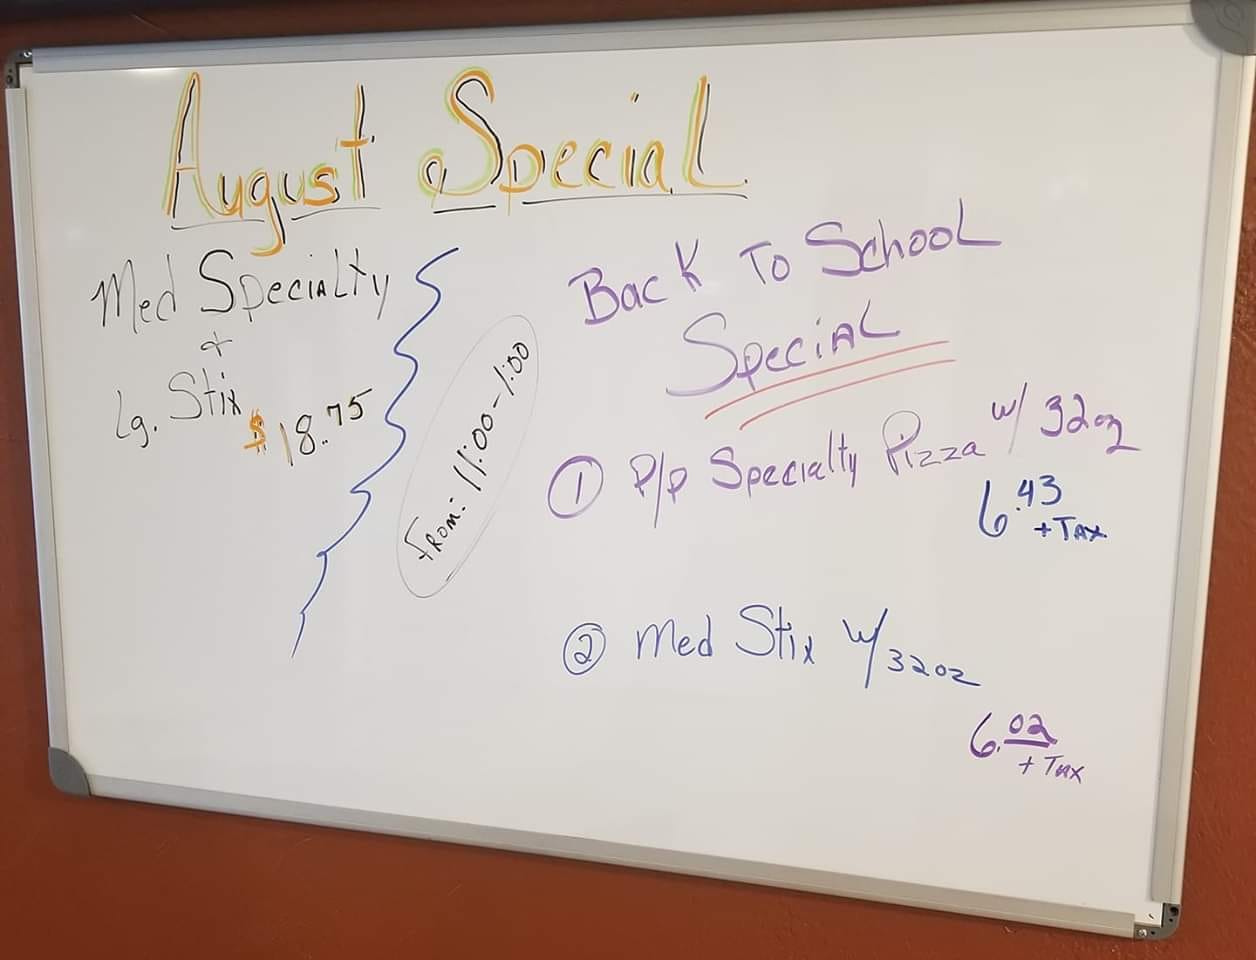 August Special
Med Specialty
+
Lg. Stix
$18.75
From: 11:00-1:00
Back To School
Special
① P/P Specialty Pizza w/ 32oz
6.43
+ Tax
② Med Stix w/ 32oz
6.02
+ Tax